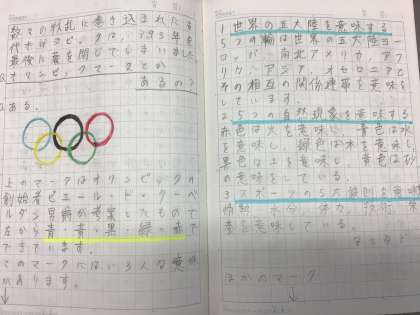 数々の戦乱に巻き込まれた古
代オリンピックは、393年を
最後に幕を閉じてしまいました
Q.オリンピックマークとか
あるの?
A.ある。
上のマークはオリンピックの
創始者ピエール・ド・クーベ
ルタン男爵が考案したもので
左から青・黄・黒・緑・赤で
できています。
このマークにはいろんな意味
があります。
1 世界の五大陸を意味する
5つの輪は世界の五大陸ヨー
ロッパ、南北アメリカ、アフ
リカ、アジア、オセアニアと
その相互の関係連帯を意味を
しています。
2 5つの自然現象を意味する
赤色は火を意味し、青色は水
を意味し、緑色は木を意味し、
黒色は土を意味し、黄色は砂
の意味をしている。
3 スポーツの5大鉄則を意味
情熱、水分、体力、技術、栄
養を意味している。
などなど
ほかのマーク